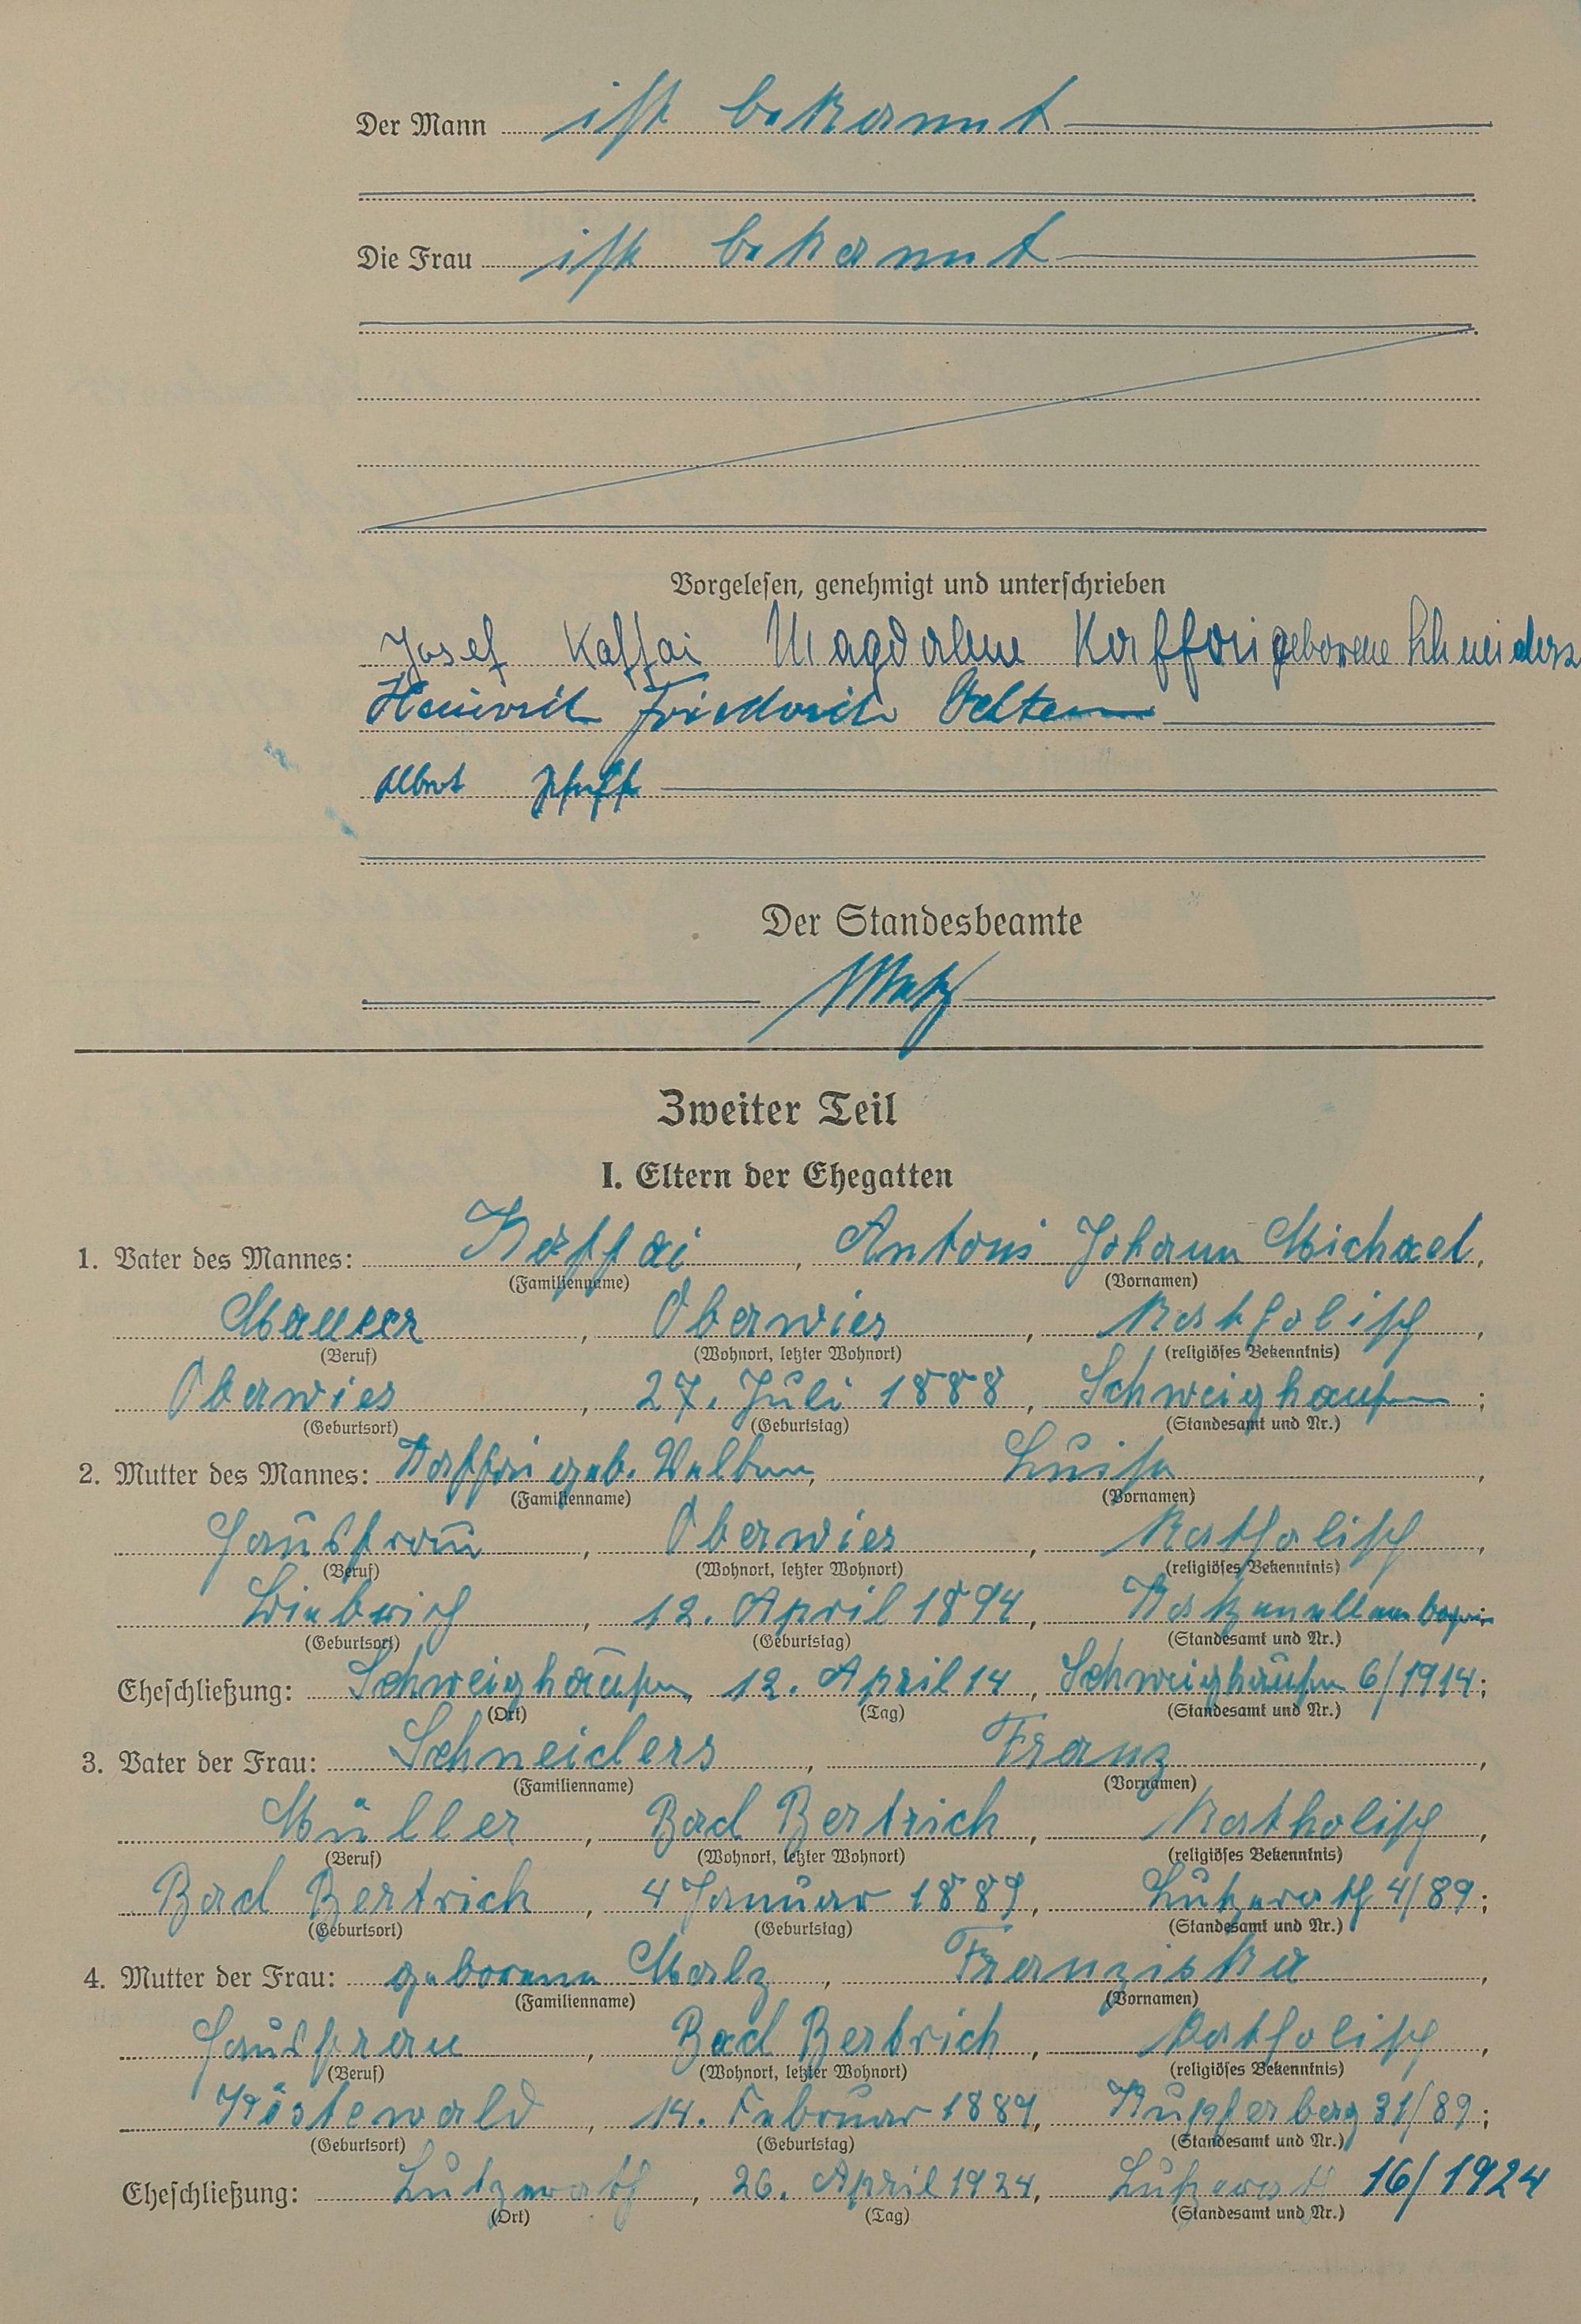 Der Mann ist bekannt
Die Frau ist bekannt
Vorgelesen, genehmigt und unterschrieben
Josef Kaffai Magdalene Kaffai geborene Schneiders
Heinrich Friedrich Velten
Albert
Der Standesbeamte
Zweiter Teil
I. Eltern der Ehegatten
1. Vater des Mannes: Kaffai, Anton Johann Michael,
(Familienname) (Vornamen)
Maurer, Oberwies, Katholisch,
(Beruf) (Wohnort, letzter Wohnort) (religiöses Bekenntnis)
Oberwies, 27. Juli 1888, Schweighausen;
(Geburtsort) (Geburtstag) (Standesamt und Nr.)
2. Mutter des Mannes: Kaffai geb. Luise,
(Familienname) (Vornamen)
Hausfrau, Oberwies, Katholisch,
(Beruf) (Wohnort, letzter Wohnort) (religiöses Bekenntnis)
12. April 1894,
(Geburtsort) (Geburtstag) (Standesamt und Nr.)
Eheschließung: Schweighausen, 12. April 14, Schweighausen 6/1914;
(Ort) (Tag) (Standesamt und Nr.)
3. Vater der Frau: Schneiders, Franz,
(Familienname) (Vornamen)
Müller, Bad Bertrich, Katholisch,
(Beruf) (Wohnort, letzter Wohnort) (religiöses Bekenntnis)
Bad Bertrich, 4 Januar 1889, Lutzerath 4/89;
(Geburtsort) (Geburtstag) (Standesamt und Nr.)
4. Mutter der Frau: geborene Malz, Franziska,
(Familienname) (Vornamen)
Hausfrau, Bad Bertrich, Katholisch,
(Beruf) (Wohnort, letzter Wohnort) (religiöses Bekenntnis)
14. Februar 1889, Kupferberg 31/89;
(Geburtsort) (Geburtstag) (Standesamt und Nr.)
Eheschließung: Lutzerath, 26. April 1924, Lutzerath 16/1924
(Ort) (Tag) (Standesamt und Nr.)